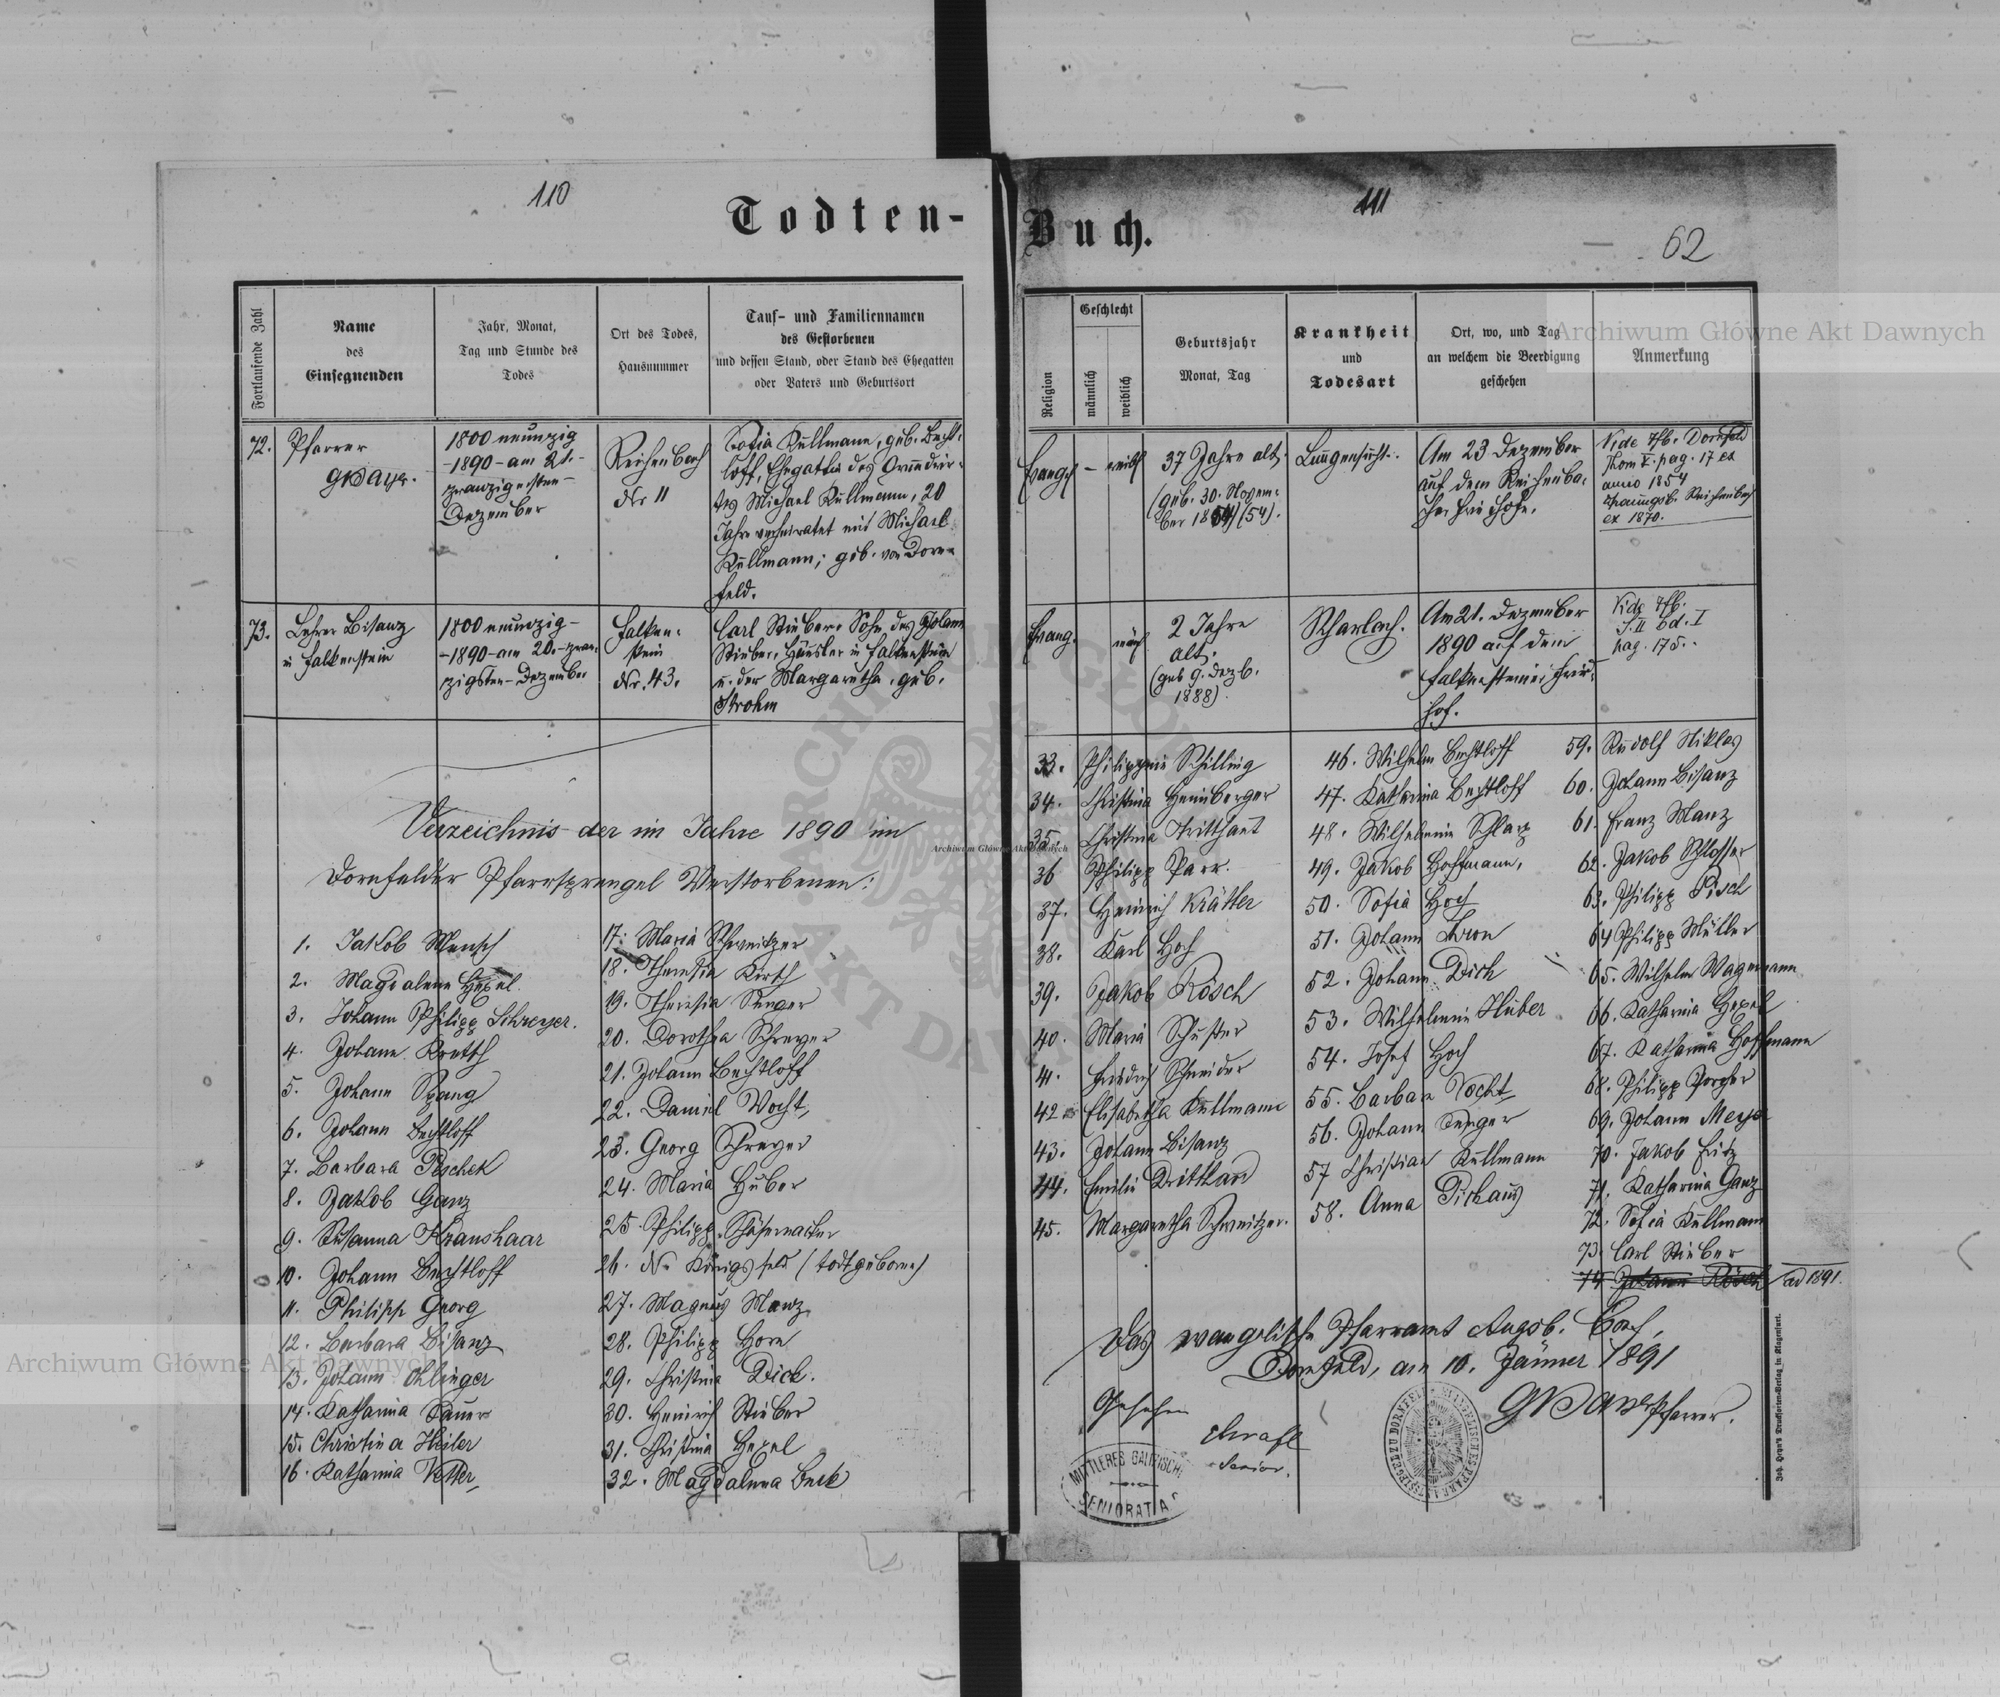 110
Todten-
Fortlaufende Zahl
Name
des
Einsegnenden
Jahr, Monat,
Tag und Stunde des
Todes
Ort des Todes,
Hausnummer
Tauf- und Familiennamen
des Gestorbenen
und dessen Stand, oder Stand des Ehegatten
oder Vaters und Geburtsort
72.
Pfarrer
1800 neunzig
-1890- am 21.-
zwanzigersten-
Dezember
Reichenbach
Nr 11
Sofia Kullmann, geb. Becht-
loff, Ehegattin des
Michael Kullmann, 20
Jahre verheiratet mit Michael
Kullmann; geb. von Dorn-
feld.
73.
Lehrer Bisanz
in Falkenstein
1800 neunzig-
-1890- am 20.-zwan-
zigsten-Dezember
Falken-
stein
Nr. 43.
Carl Stieber, Sohn des Johann
Stieber, Häusler in Falkenstein
u. der Margaretha, geb.
Strohm
Verzeichnis der im Jahre 1890 im
Dornfelder Pfarrsprengel Verstorbenen:
1. Jakob Mensch
2. Magdalena Hexel.
3. Johann Philipp Schreyer.
4. Johann
5. Johann Spang
6. Johann Bechtloff
7. Barbara Peschek
8. Jakob Ganz
9. Susanna Kranshaar
10. Johann Bechtloff
11. Philipp Georg
12. Barbara Bisanz
13. Johann Ohlinger
14. Katharina Sauer
15. Christina Heiler
16. Katharina Vetter
17. Maria Schweitzer
18. Theresia Kirsch
19. Theresia Senger
20. Dorothea Schreyer
21. Johann Bechtloff
22. Daniel Vocht
23. Georg Schreyer
24. Maria Huber
25. Philipp Schäfernacker
26. N. Königsfeld (todtgeboren)
27. Magnus Manz
28. Philipp Horn
29. Christina Dick.
30. Heinrich Stieber
31. Christina Hexel
32. Magdalena Beck
111
Buch.
62
Religion
Geschlecht
männlich
weiblich
Geburtsjahr
Monat, Tag
Krankheit
und
Todesart
Ort, wo, und Tag
an welchem die Beerdigung
geschehen
Anmerkung
Evangel
weibl
37 Jahre alt.
(geb. 30. Novem-
ber 1854) (54).
Lungensucht.
Am 23 Dezember
auf dem Reichenba-
cher Friedhofe.
Vide Tfb. Dornfeld
Thom I. pag. 17 ex
anno 1854
Trauungsb. Reichenbach
ex 1870.
Evang.
män
2 Jahre
alt.
(geb 9. Dezb.
1888).
Scharlach.
Am 21. Dezember
1890 auf dem
Falkensteiner Fried-
hof.
Vide Tfb.
S. II Bd. I
pag. 175.
33. Philippine Schilling
34. Christina Hennberger
35. Christina Tritthart
36 Philipp Parr.
37. Heinrich Krätter
38. Karl Hoch
39. Jakob Rösch
40. Maria Schuster
41. Friedrich Schneider
42. Elisabetha Kullmann
43. Johann Bisanz
44. Emilie
45. Margaretha Schweitzer.
46. Wilhelm Bechtloff
47. Katharina Bechtloff
48. Wilhelmine Schlarp
49. Jakob Hoffmann,
50. Sofia Hoch
51. Johann
52. Johann Dick
53. Wilhelmine Huber
54. Josef Hoch
55. Barbara Vocht
56. Johann Senger
57 Christian Kullmann
58. Anna Pickaus
59. Rudolf Niklas
60. Johann Bisanz
61. Franz Manz
62. Jakob Schlosser
63. Philipp
64 Philipp Müller
65. Wilhelm Wagemann
66. Katharina Hexel
67. Katharina Hoffmann
68. Philipp
69. Johann Meyer
70. Jakob Fritz
71. Katharina Ganz
72. Sofia Kullmann
73. Carl Stieber
74 Johann Rösch ad 1891.
Das evangelische Pfarramt Augsb. Conf.
Dornfeld, am 10. Jänner 1891
Gesehen
Senior.
Pfarrer.
MITTLERES GALIZISCHES
SENIORAT A.C
Joh. Heyn's Drucksorten-Verlag in Klagenfurt.
Archiwum Główne Akt Dawnych
Archiwum Główne Akt Dawnych
Archiwum Główne Akt Dawnych